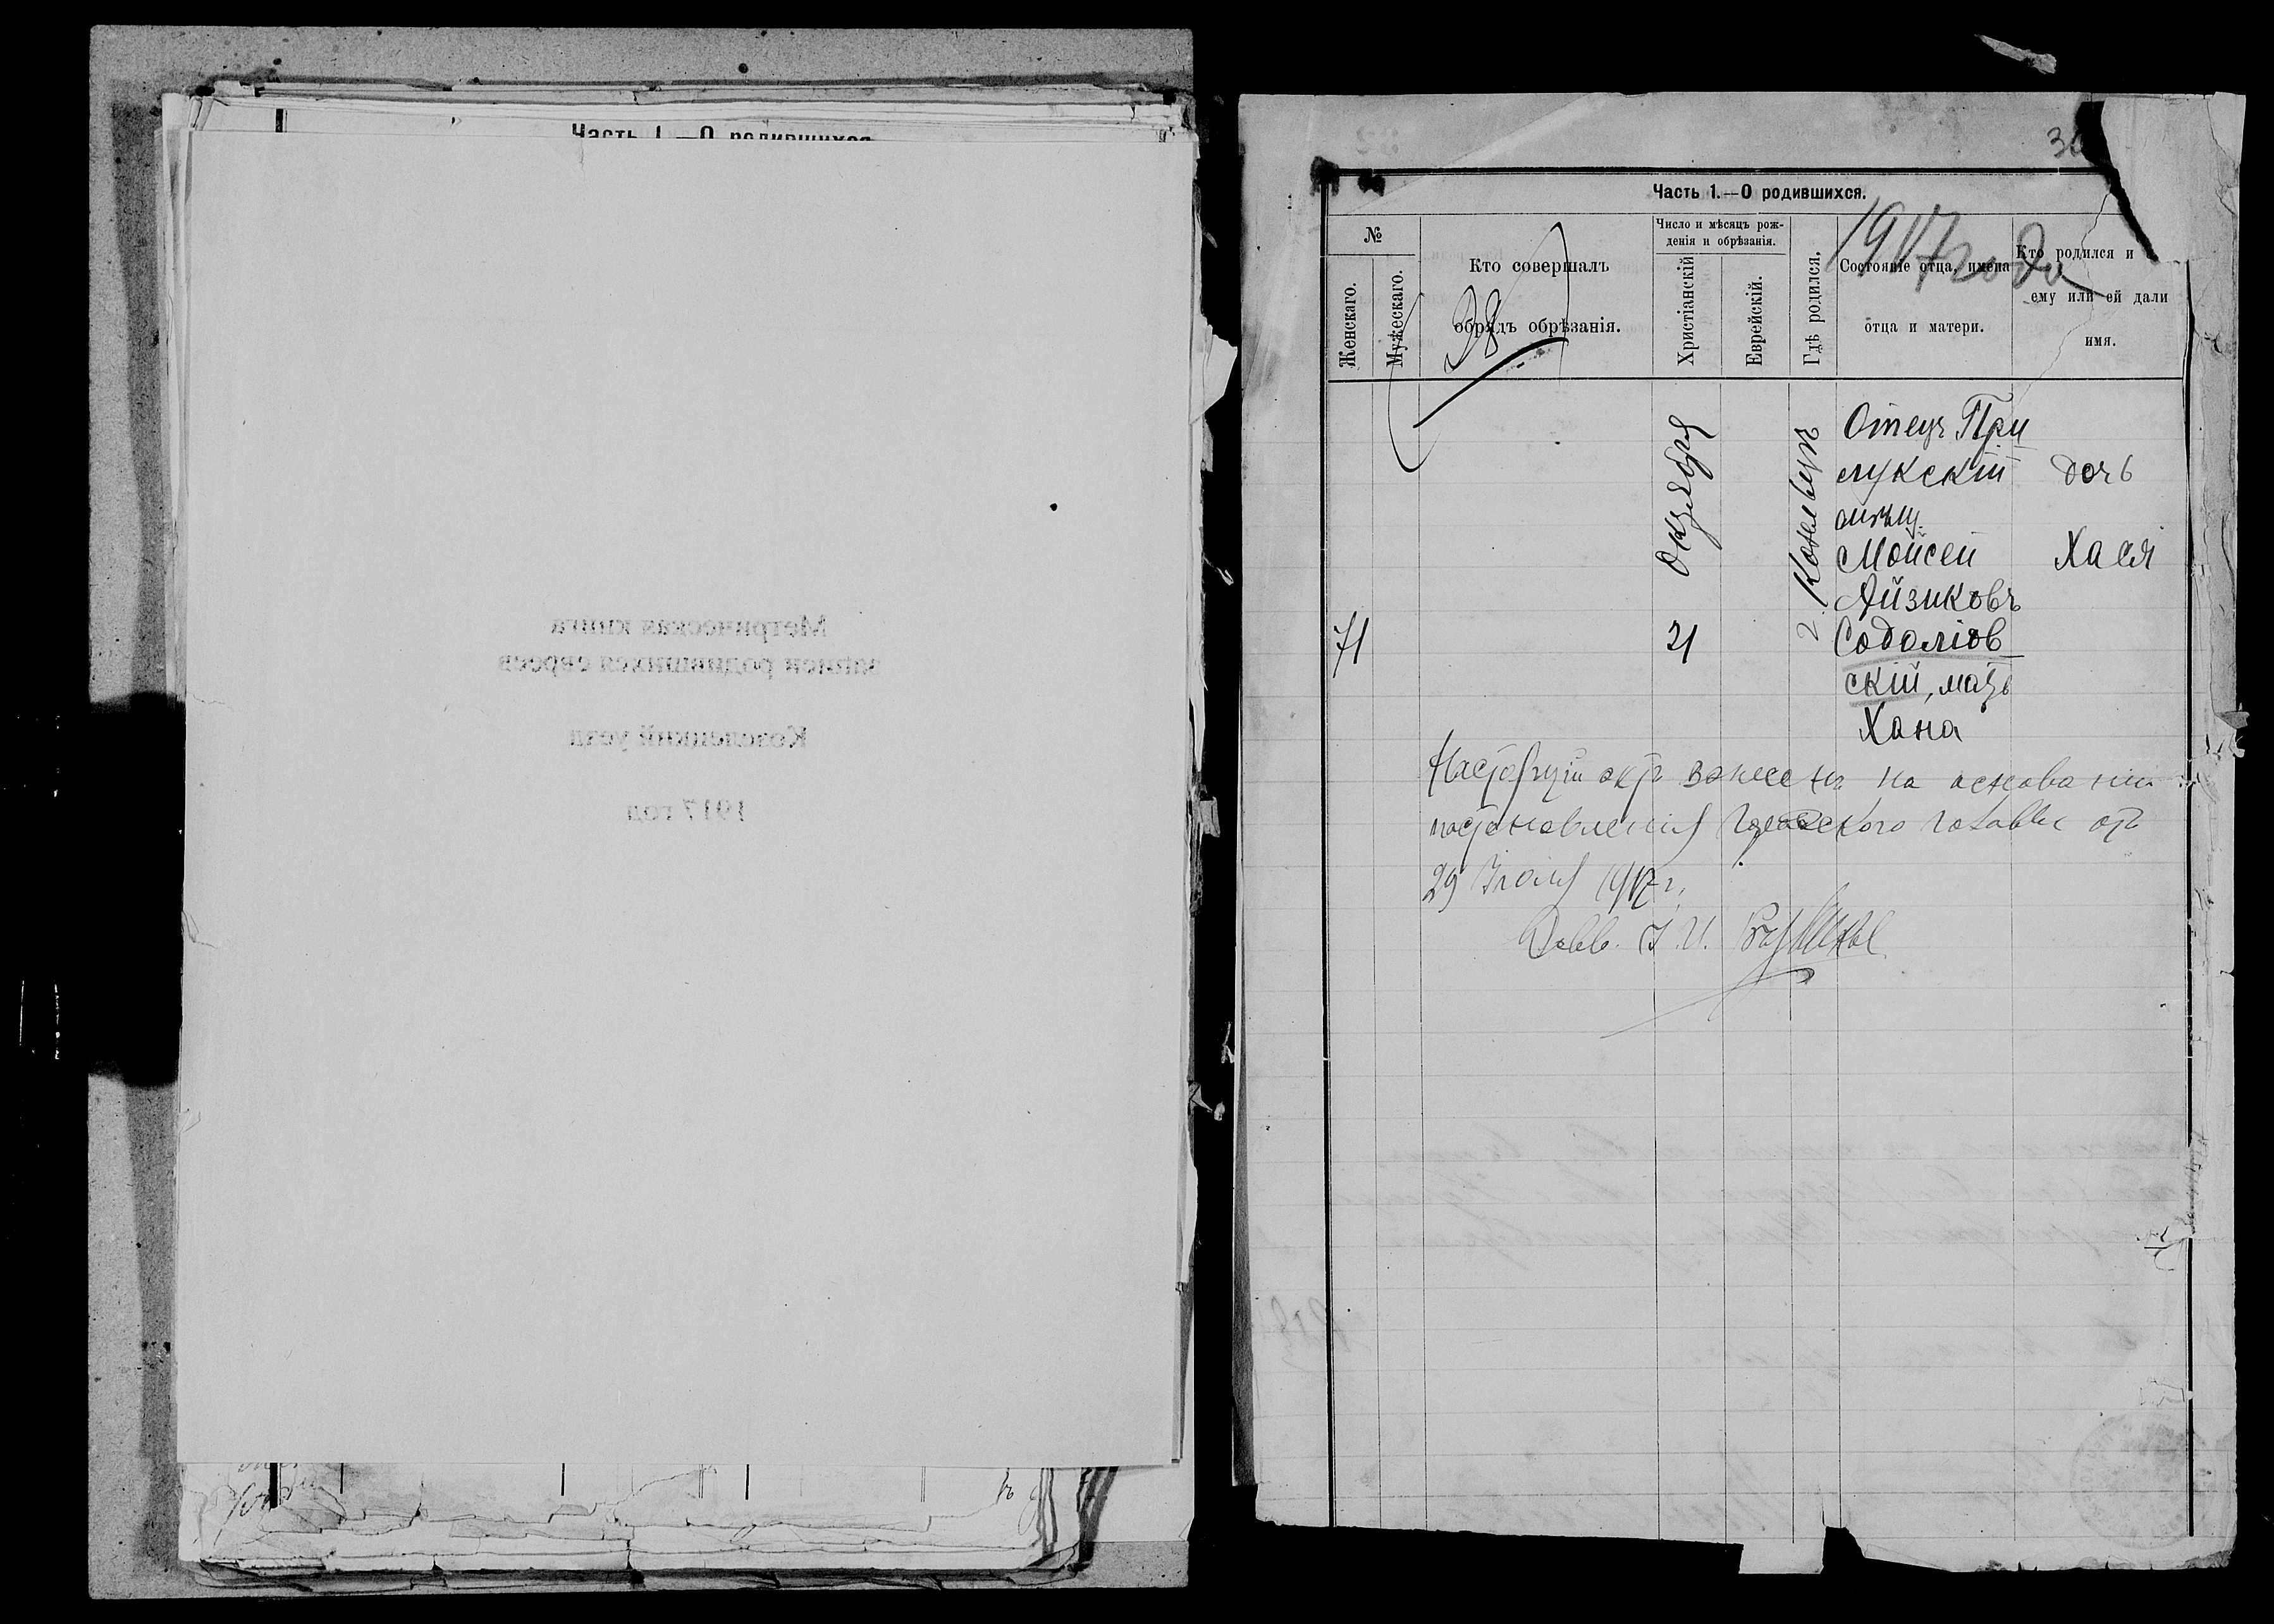 Часть 1.—О родившихся
Метрическая книга
записи родившихся евреев
Козелецкий уезд
1917 год
Часть 1.—О родившихся.
1917 года
№
Женскаго.
Мужескаго.
Кто совершалъ
обрядъ обрѣзанія.
38
Число и мѣсяцъ рож-
денія и обрѣзанія.
Христіанскій
Еврейскій.
Гдѣ родился.
Состояніе отца, имена
отца и матери.
Кто родился и
ему или ей дали
имя.
71
Октября
21
г. Козельцѣ
Отецъ При
лукскій
мѣщ.
Мойсей
Айзиковъ
Содолов
скій, мать
Хана
дочь
Хася
Настоящій актъ внесенъ на основаніи
постановленія Городского головы отъ
29 Іюля 1917 г.